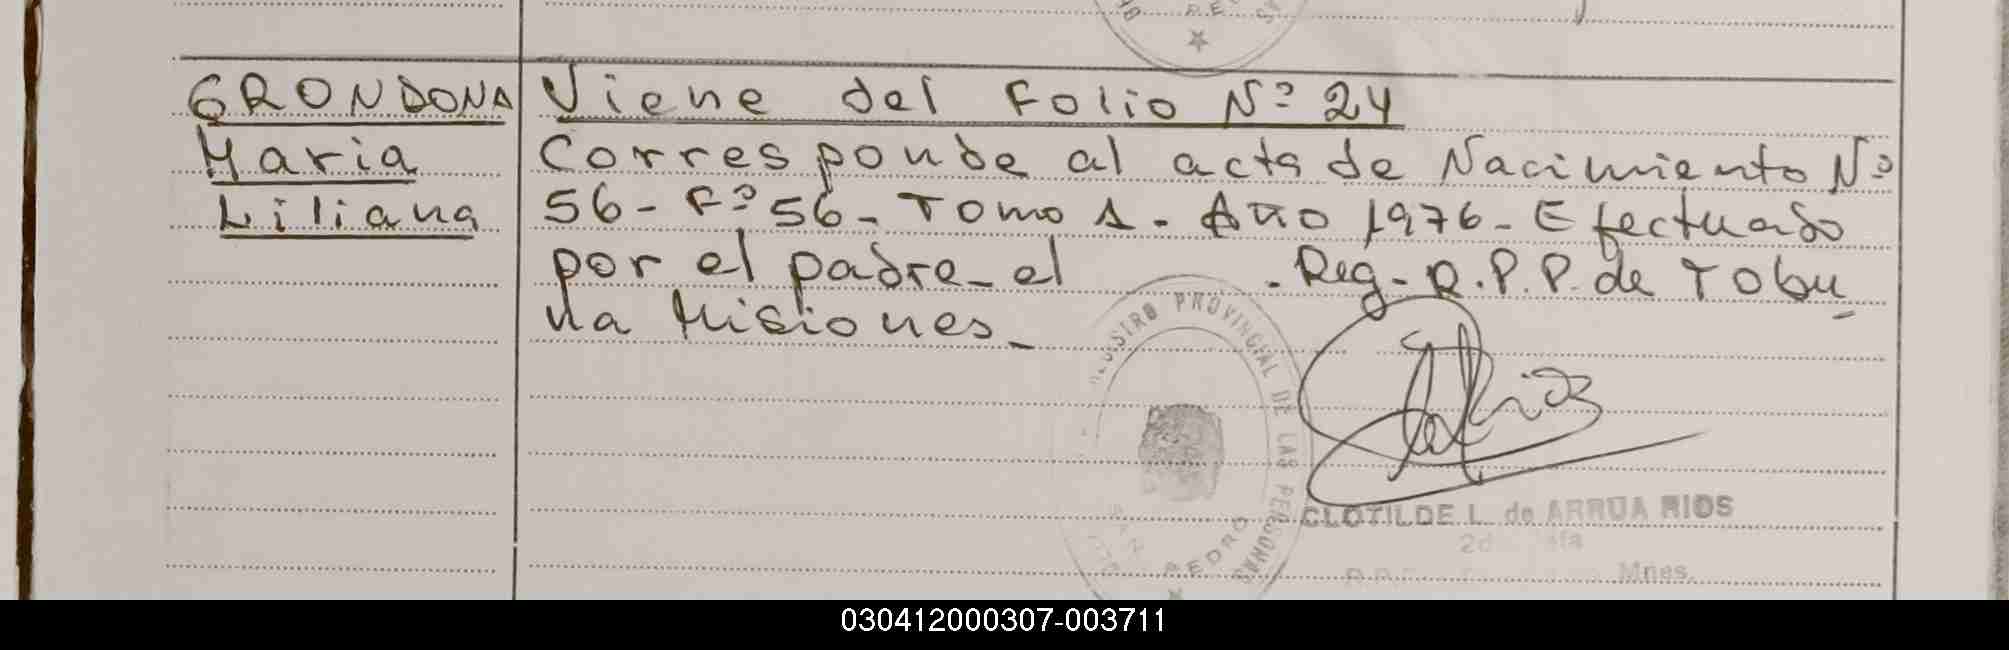 GRONDONA
Maria
Liliana
Viene del Folio Nº 24
Corresponde al acta de Nacimiento Nº
56- Fº 56- Tomo 1- Año 1976- Efectuado
por el padre- el . Reg- R.P.P. de Tobu
na Misiones-
REGISTRO PROVINCIAL DE LAS PERSONAS
SAN PEDRO
CLOTILDE L. de ARRUA RIOS
Mnes.
030412000307-003711